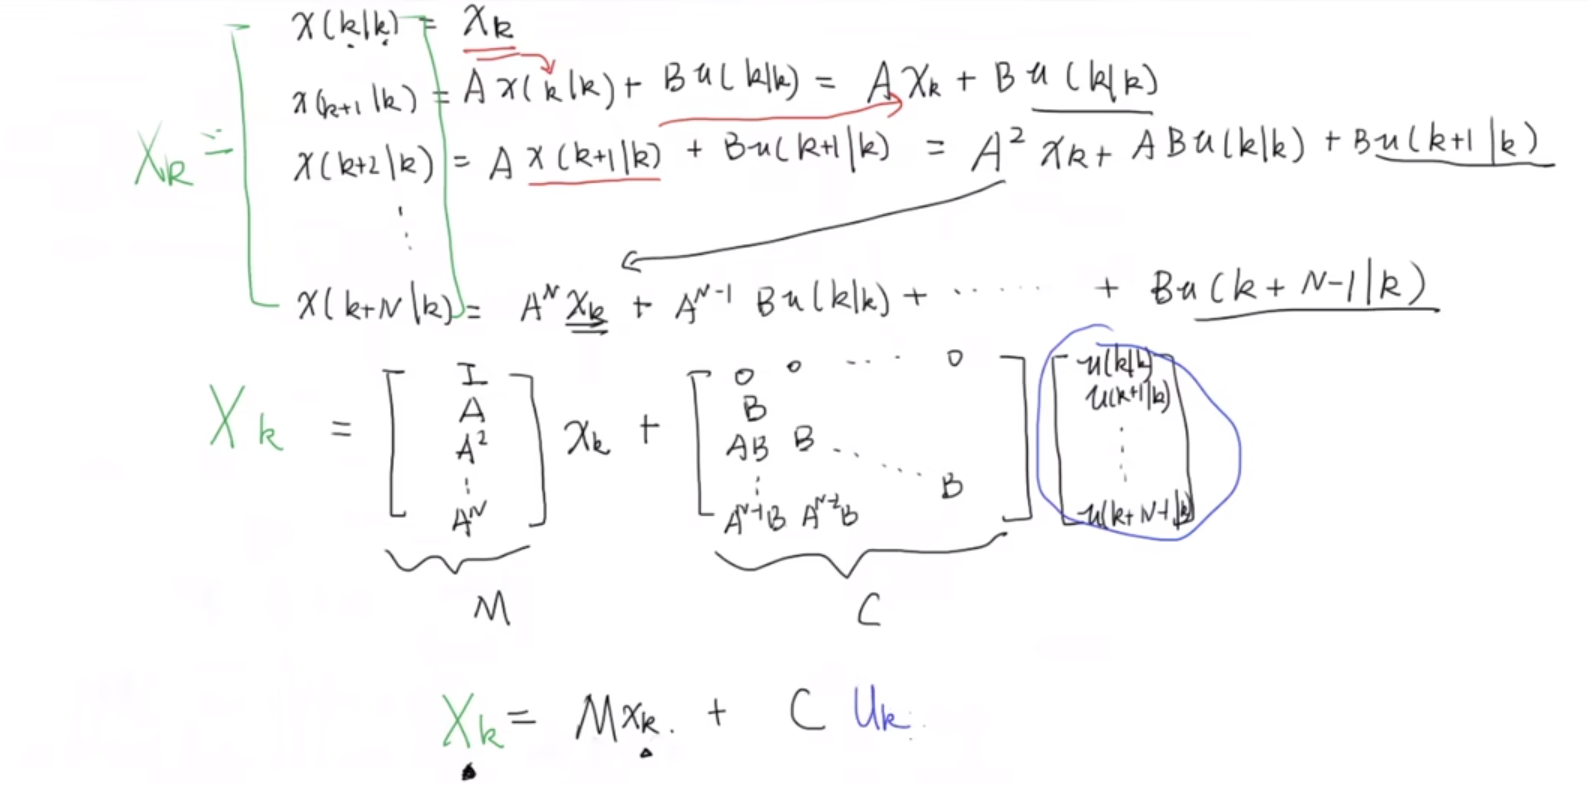 x(k|k) = xk
x(k+1|k) = A x(k|k) + B u(k|k) = A xk + B u(k|k)
Xk = x(k+2|k) = A x(k+1|k) + B u(k+1|k) = A² xk + A B u(k|k) + B u(k+1|k)
⋮
x(k+N|k) = A^N xk + A^N-1 B u(k|k) + ······ + B u(k+N-1|k)
Xk = [ I A A² ⋮ A^N ] xk + [ 0 0 ··· 0
B
AB B ···
⋮ B
A^N-1 B A^N-2 B ] [ u(k|k) u(k+1|k) ⋮ u(k+N-1|k) ]
M C
Xk = M xk. + C Uk